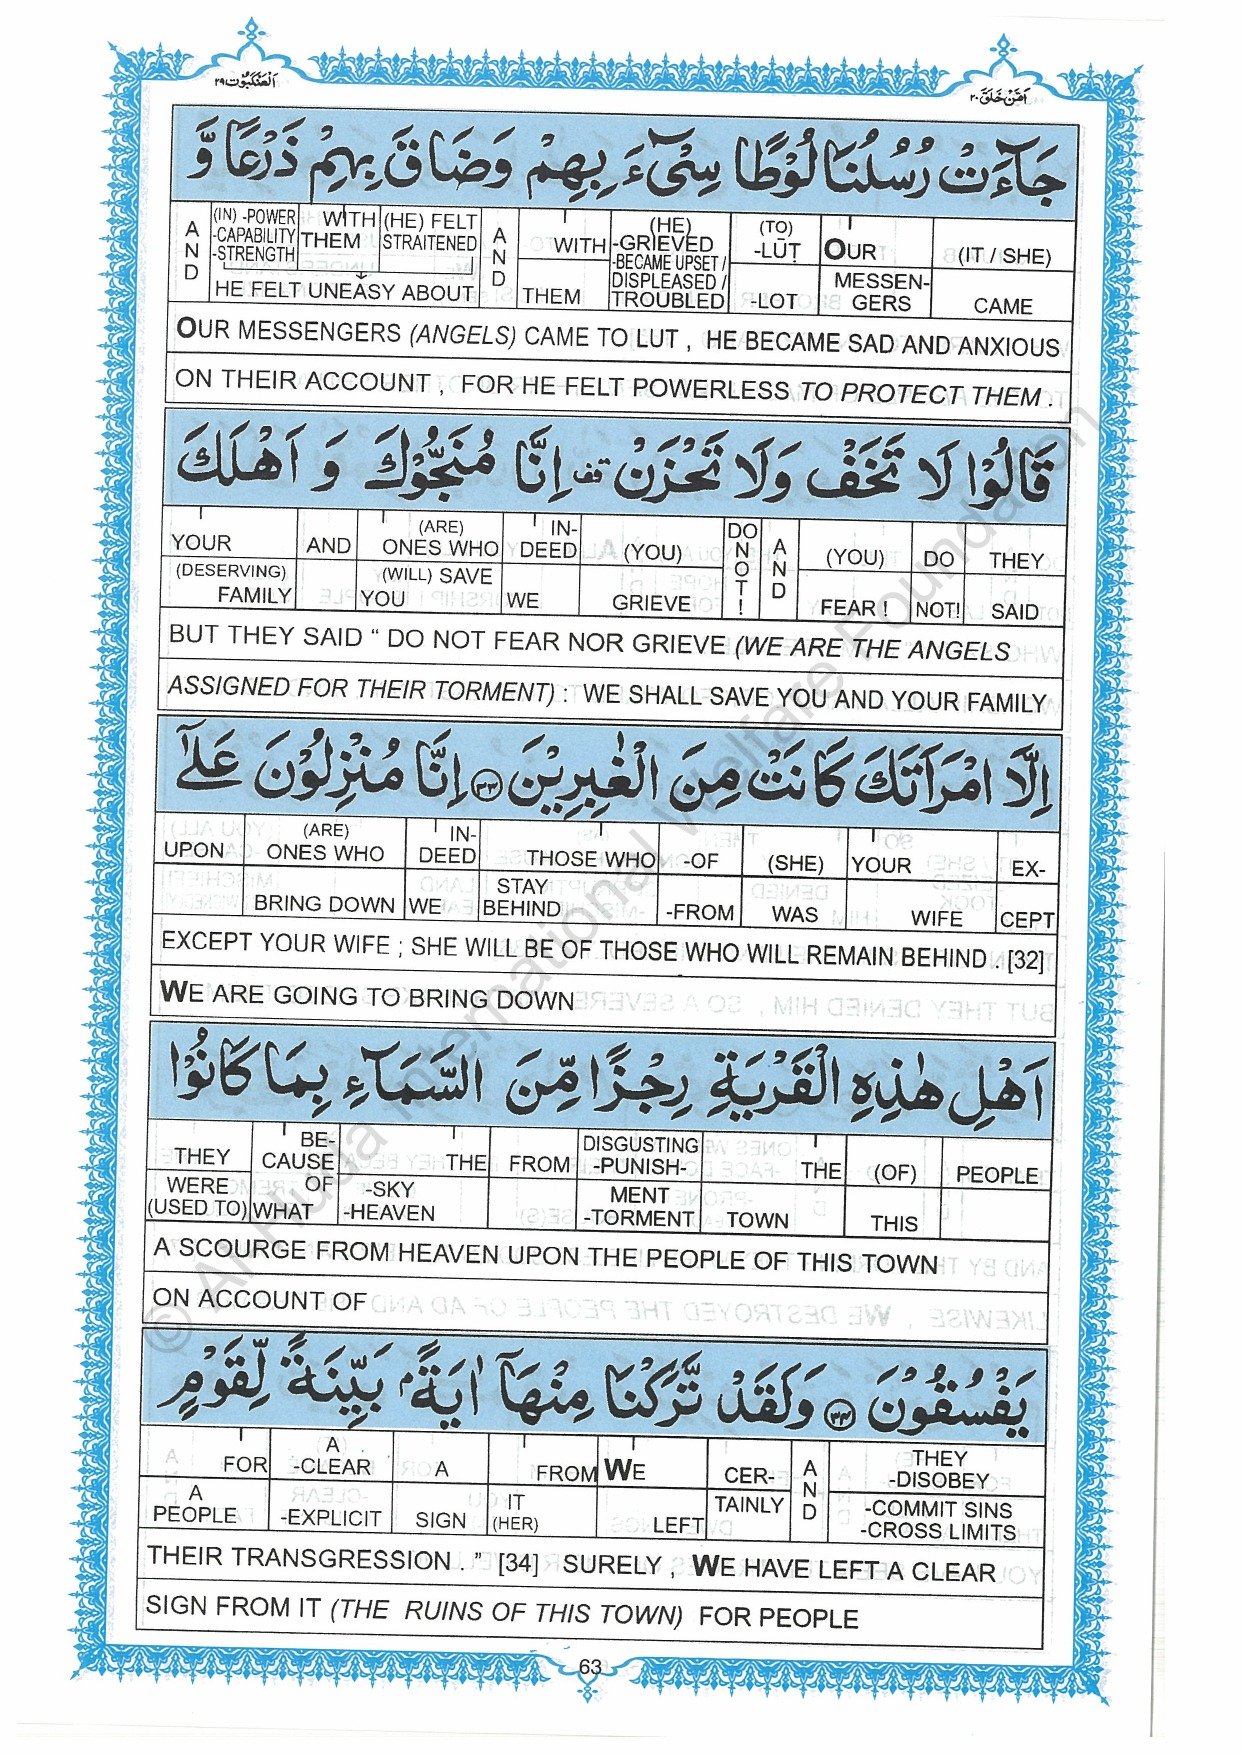 العنكبوت ٢٩
امن خلق ٢٠
جَآءَتْ رُسُلُنَا لُوْطًا سِیْٓءَ بِهِمْ وَضَاقَ بِهِمْ ذَرْعًا وَّ
(IT / SHE) CAME
OUR MESSEN-GERS
(TO) -LŪṬ -LOT
(HE) -GRIEVED -BECAME UPSET / DISPLEASED / TROUBLED
WITH THEM
AND
(HE) FELT STRAITENED
WITH THEM
(IN) -POWER -CAPABILITY -STRENGTH
HE FELT UNEASY ABOUT
AND
OUR MESSENGERS (ANGELS) CAME TO LUT , HE BECAME SAD AND ANXIOUS
ON THEIR ACCOUNT , FOR HE FELT POWERLESS TO PROTECT THEM .
قَالُوْا لَا تَخَفْ وَلَا تَحْزَنْ قف اِنَّا مُنَجُّوْكَ وَ اَهْلَكَ
THEY SAID
DO NOT!
(YOU) FEAR !
AND
DO NOT!
(YOU) GRIEVE
IN-DEED WE
(ARE) ONES WHO (WILL) SAVE YOU
AND
YOUR (DESERVING) FAMILY
BUT THEY SAID “ DO NOT FEAR NOR GRIEVE (WE ARE THE ANGELS
ASSIGNED FOR THEIR TORMENT) : WE SHALL SAVE YOU AND YOUR FAMILY
اِلَّا امْرَاَتَكَ كَانَتْ مِنَ الْغٰبِرِيْنَ ٣٣ اِنَّا مُنْزِلُوْنَ عَلٰٓى
EX-CEPT
YOUR WIFE
(SHE) WAS
-OF -FROM
THOSE WHO STAY BEHIND
IN-DEED WE
(ARE) ONES WHO BRING DOWN
UPON
EXCEPT YOUR WIFE ; SHE WILL BE OF THOSE WHO WILL REMAIN BEHIND . [32]
WE ARE GOING TO BRING DOWN
اَهْلِ هٰذِهِ الْقَرْيَةِ رِجْزًا مِّنَ السَّمَآءِ بِمَا كَانُوْا
PEOPLE
(OF) THIS
THE TOWN
DISGUSTING -PUNISH-MENT -TORMENT
FROM
THE -SKY -HEAVEN
BE-CAUSE OF WHAT
THEY WERE (USED TO)
A SCOURGE FROM HEAVEN UPON THE PEOPLE OF THIS TOWN
ON ACCOUNT OF
يَفْسُقُوْنَ ٣٤ وَلَقَدْ تَّرَكْنَا مِنْهَآ اٰيَةًۢ بَيِّنَةً لِّقَوْمٍ
THEY -DISOBEY -COMMIT SINS -CROSS LIMITS
AND
CER-TAINLY
WE LEFT
FROM IT (HER)
A SIGN
A -CLEAR -EXPLICIT
FOR A PEOPLE
THEIR TRANSGRESSION . ” [34] SURELY , WE HAVE LEFT A CLEAR
SIGN FROM IT (THE RUINS OF THIS TOWN) FOR PEOPLE
63
© Al Huda International Welfare Foundation